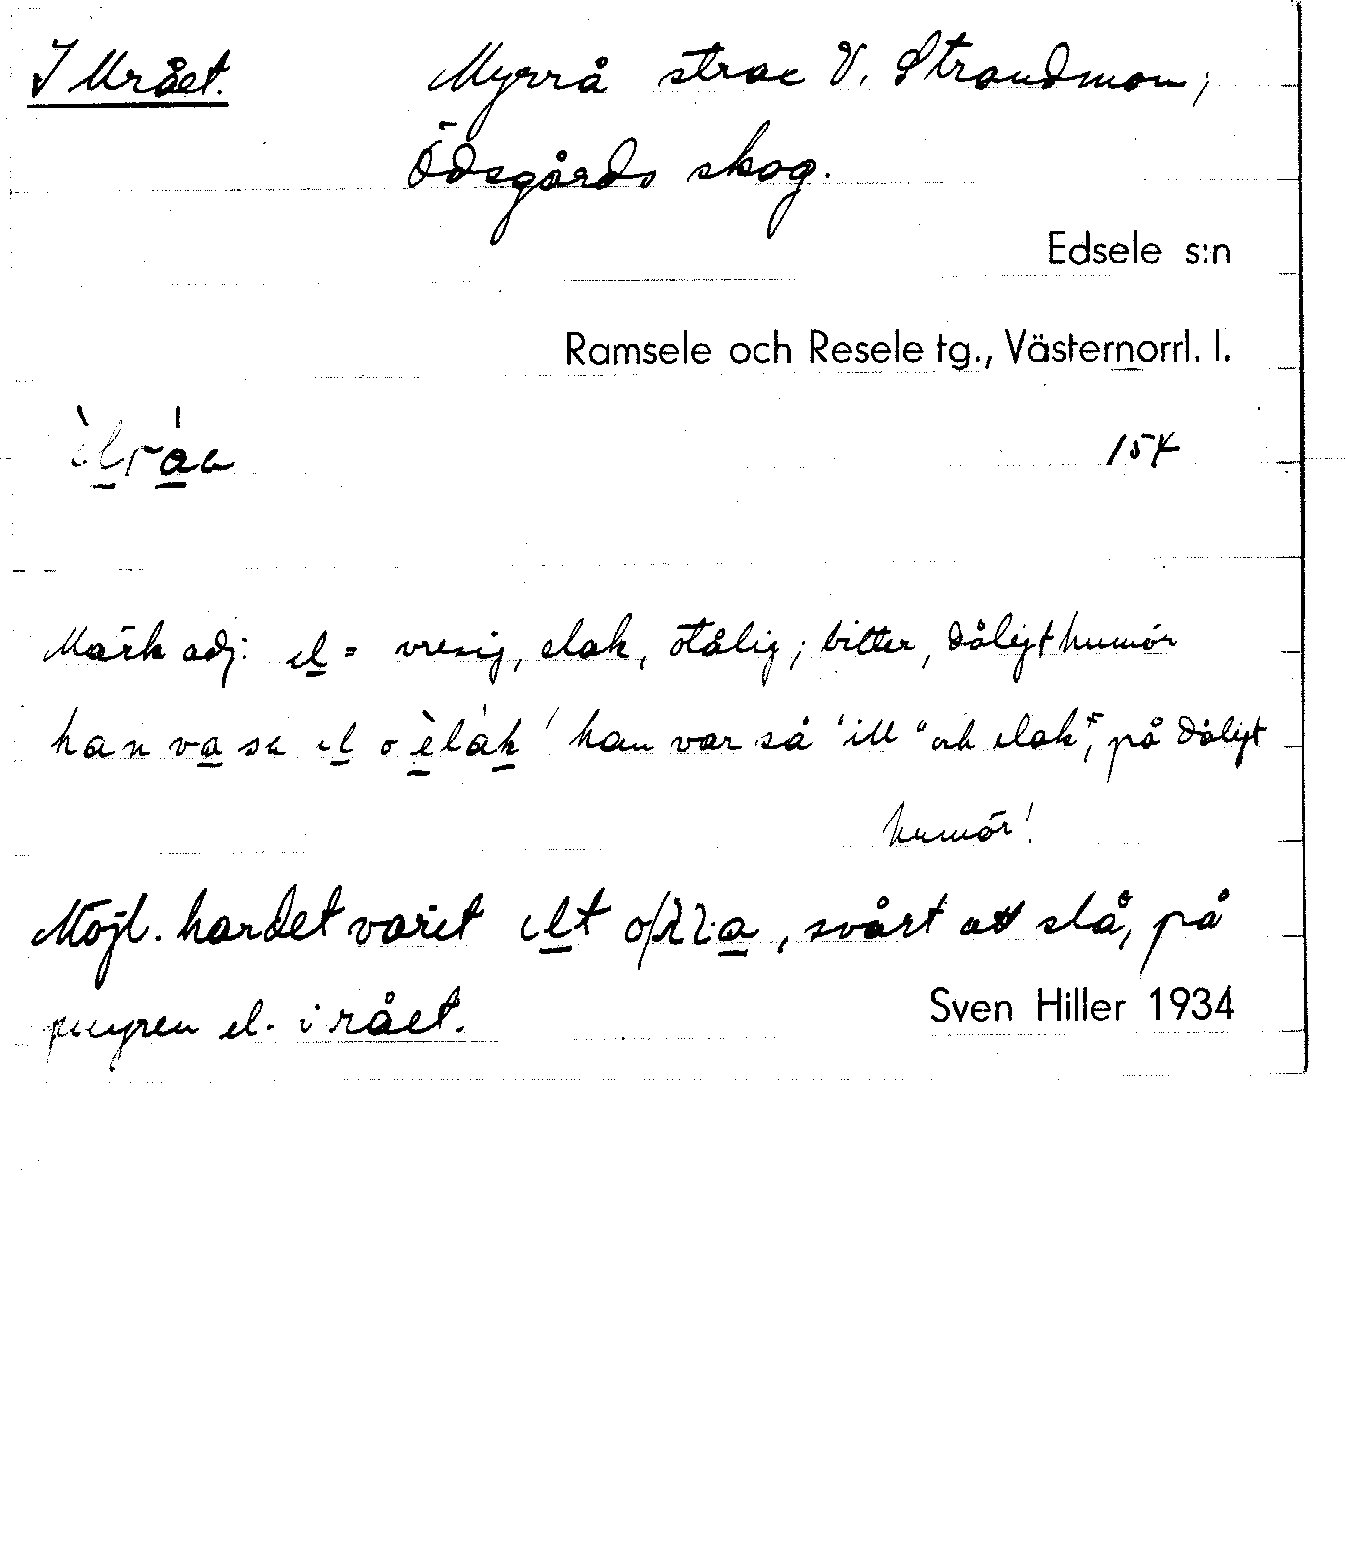 Illrået. Myrrå strax V. Strandmon,
Ödsgårds skog.
Edsele s:n
Ramsele och Resele tg., Västernorrl. l.
154
Märk adj: el = vresig, elak, otålig; bitter, dåligt humör
han va sa el o èlàk ' han var så "ill" och elak", på dåligt
humör!
Möjl. har det varit elt , svårt att slå, på
myren el. i rået.
Sven Hiller 1934